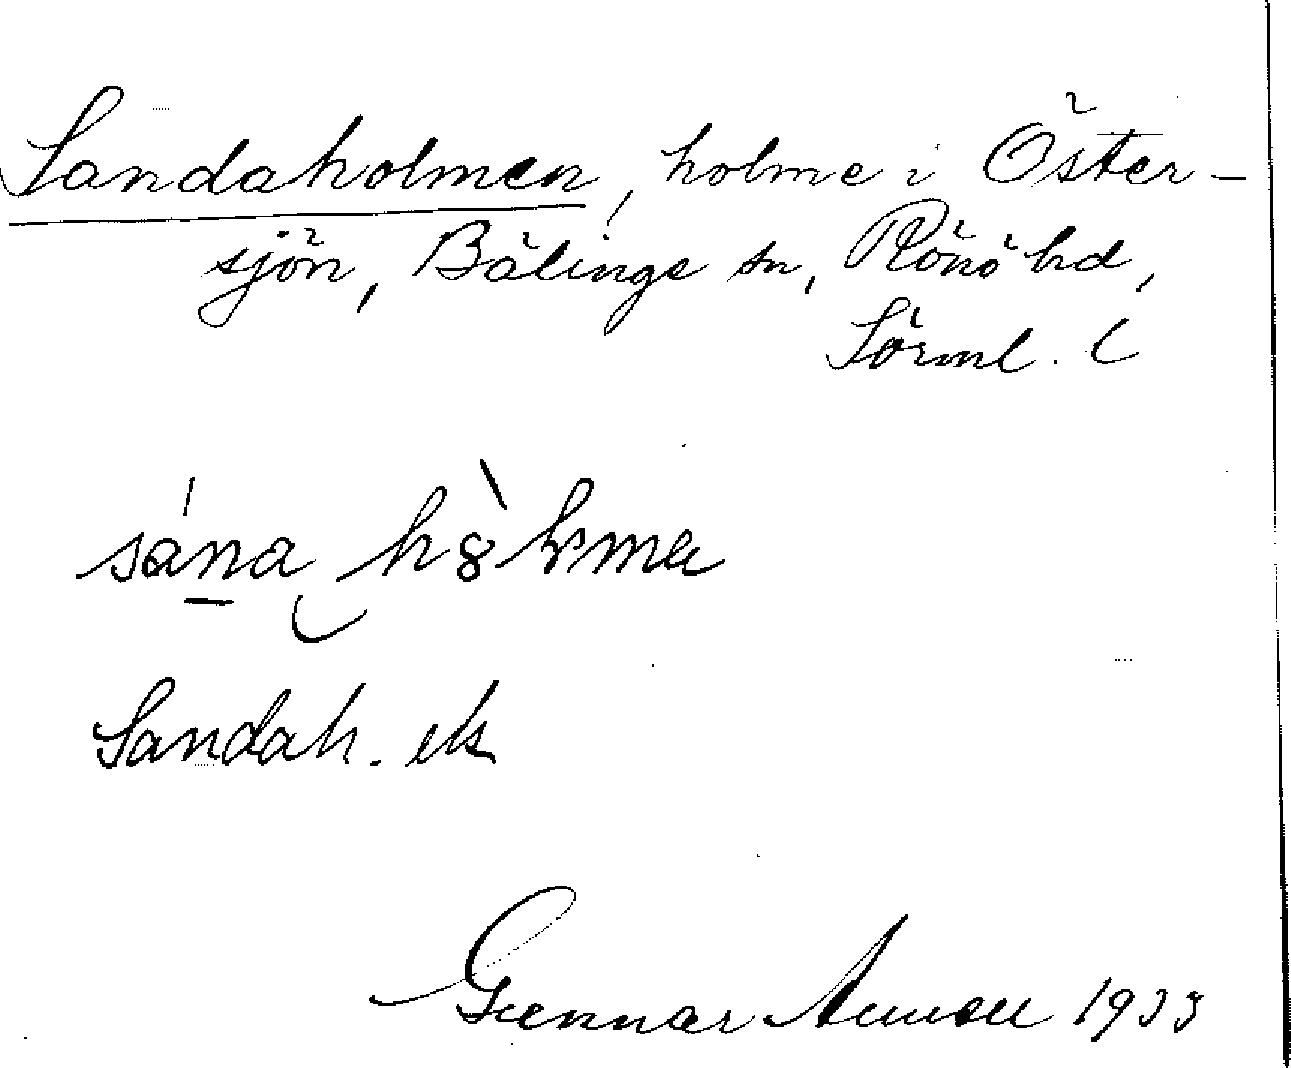 Sandaholmen, holme i Öster-
sjön, Bälinge sn, Rönö hd,
Sörml. l
sána
Sandah. ek
Gunnar 1933